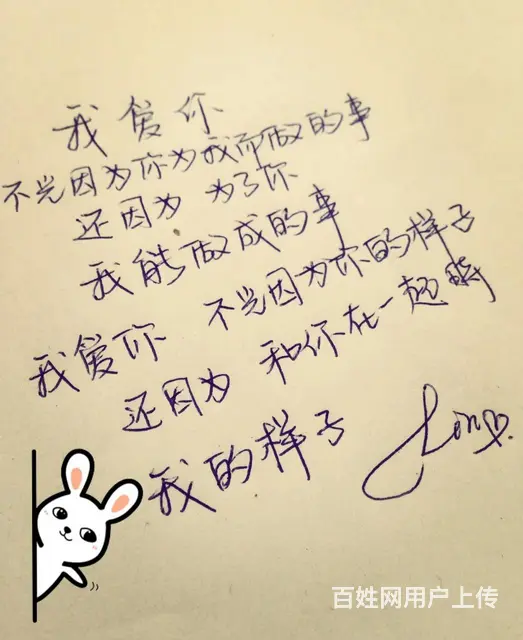 我爱你
不光因为你为我而做的事
还因为 为了你
我能做成的事
我爱你 不光因为你的样子
还因为 和你在一起时
我的样子
百姓网用户上传